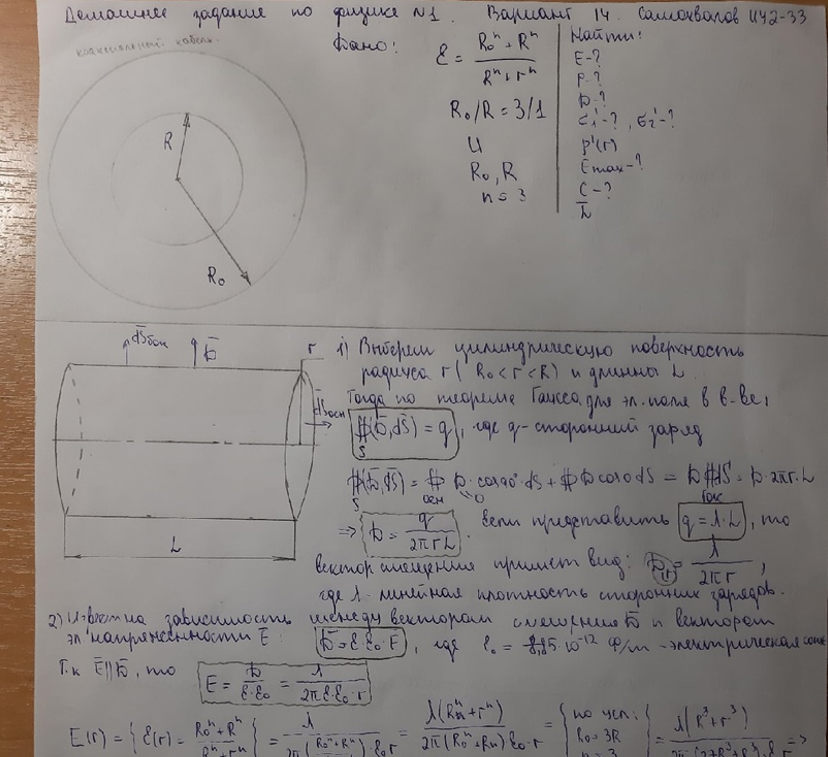 Домашнее задание по физике №1. Вариант 14. Самохвалов ИУ2-33
коаксиальный кабель
Дано:
ε = (R₀ⁿ + Rⁿ) / (Rⁿ + rⁿ)
R₀/R = 3/1
U
R₀, R
n = 3
Найти:
E-?
P-?
D-?
σ₁'-?, σ₂'-?
ρ'(r)
Emax-?
C-?
L
R
R₀
dS̄бок
D̄
r
dS̄осн
L
1) Выберем цилиндрическую поверхность
радиуса r (R₀ < r < R) и длинны L.
Тогда по теореме Гаусса для эл. поля в в-ве:
∯(D̄, dS̄) = q, где q - сторонний заряд
S
∯(D̄, dS̄) = ∯ D·cos90° dS + ∯ D cos0 dS = D∯dS = D·2πr·L
S осн =0 бок
=> D = q / (2πrL). Если представить q = λ·L, то
вектор смещения примет вид: D(r) = λ / (2πr),
где λ - линейная плотность сторонних зарядов.
2) Известна зависимость между вектором смещения D̄ и вектором
эл. напряженности Ē: D̄ = ε·ε₀·Ē, где ε₀ = 8,85·10⁻¹² Ф/м - электрическая
Т.к Ē||D̄, то E = D / (ε·ε₀) = λ / (2πε·ε₀·r)
E(r) = {ε(r) = (R₀ⁿ + Rⁿ) / (Rⁿ + rⁿ)} = λ / (2π(R₀ⁿ + Rⁿ)·ε₀r = λ(Rⁿ + rⁿ) / (2π(R₀ⁿ + Rⁿ)ε₀·r) = {по усл: R₀ = 3R n = 3} = λ(R³ + r³) / (2π(27R³ + R³)·ε₀r =>